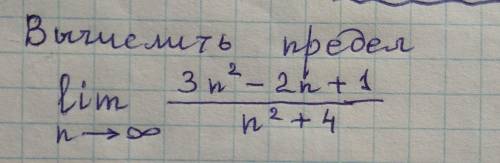 Вычислить предел
lim 3n² - 2n + 1
n → ∞ n² + 4